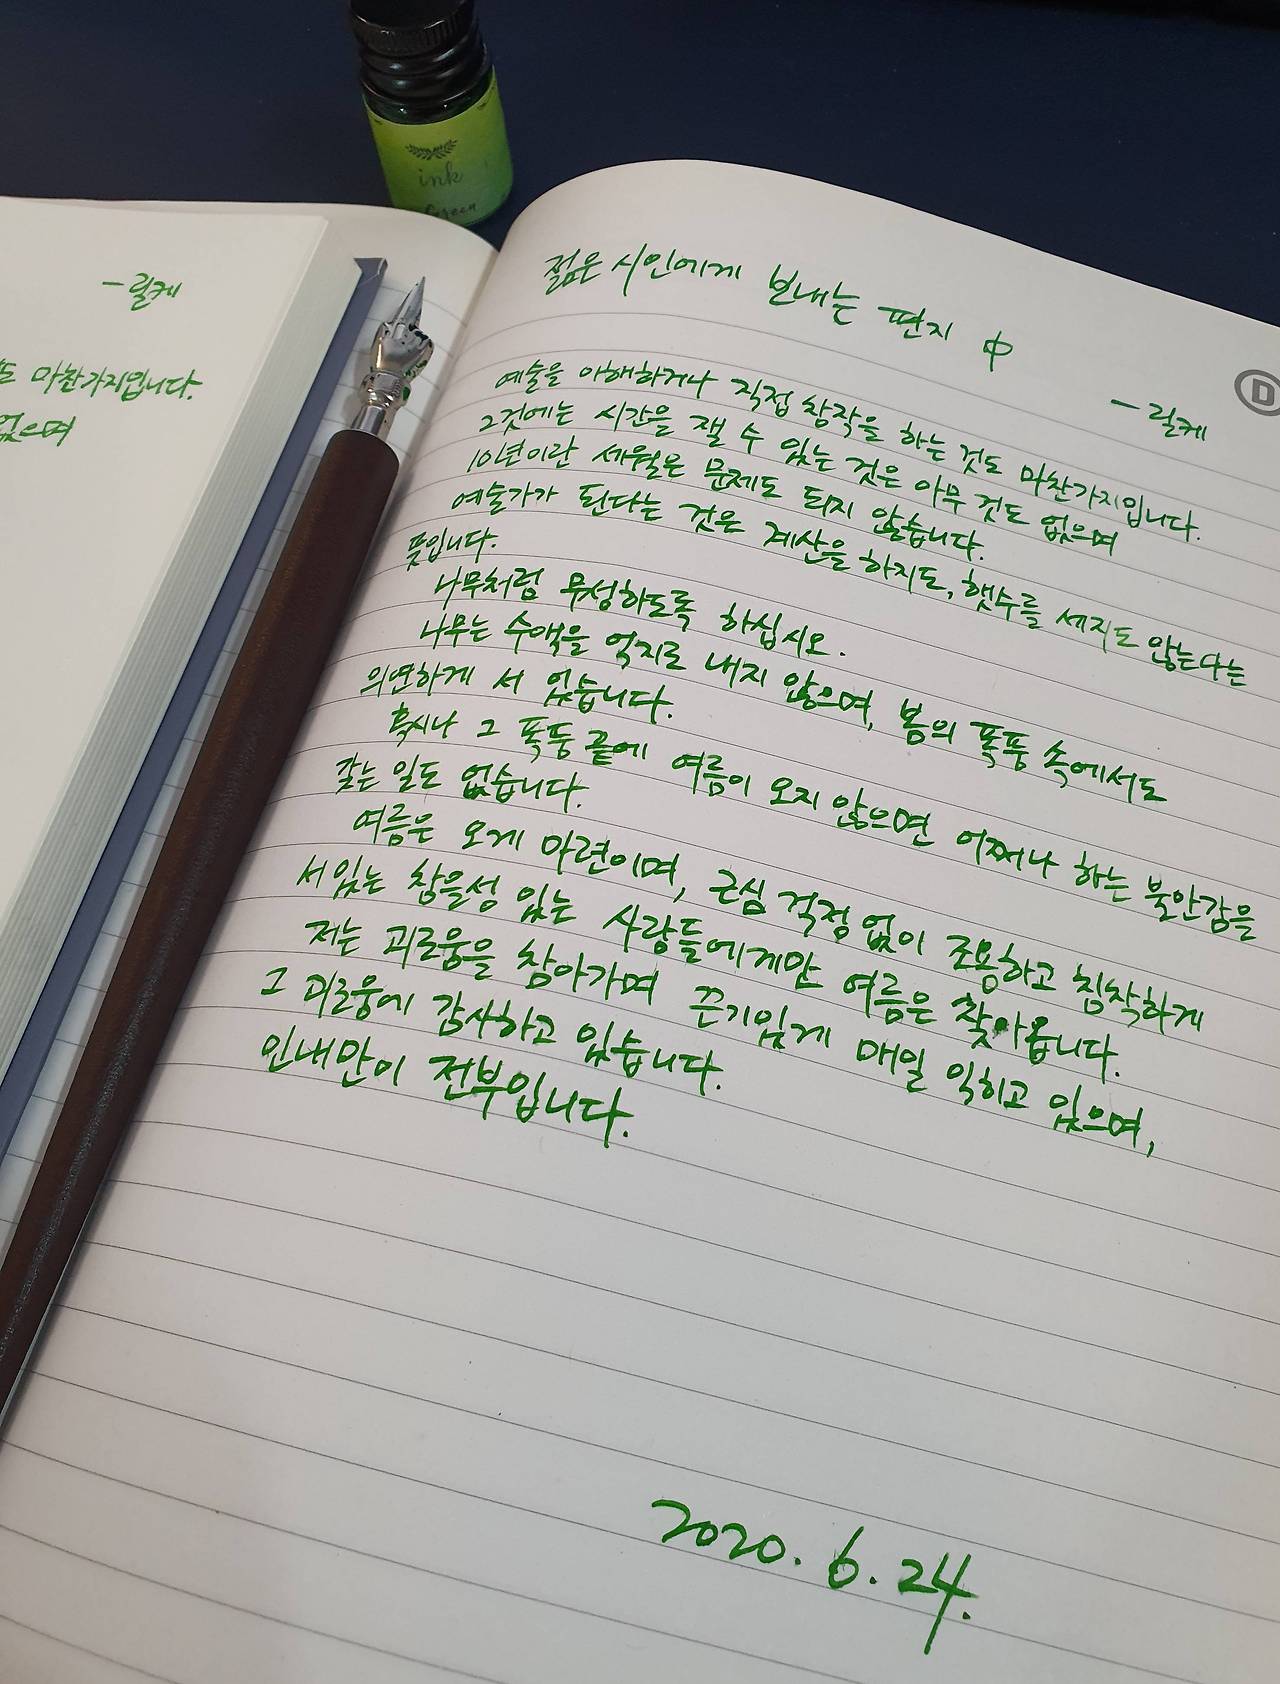 ink
Green
- 릴케
도 마찬가지입니다.
없으며
젊은 시인에게 보내는 편지 中
- 릴케
D
예술을 이해하거나 직접 창작을 하는 것도 마찬가지입니다.
그것에는 시간을 잴 수 있는 것은 아무 것도 없으며
10년이란 세월은 문제도 되지 않습니다.
예술가가 된다는 것은 계산을 하지도, 햇수를 세지도 않는다는
뜻입니다.
나무처럼 무성하도록 하십시오.
나무는 수액을 억지로 내지 않으며, 봄의 폭풍 속에서도
의연하게 서 있습니다.
혹시나 그 폭풍 끝에 여름이 오지 않으면 어쩌나 하는 불안감을
갖는 일도 없습니다.
여름은 오게 마련이며, 근심 걱정 없이 조용하고 침착하게
서있는 참을성 있는 사람들에게만 여름은 찾아옵니다.
저는 괴로움을 참아가며 끈기있게 매일 익히고 있으며,
그 괴로움에 감사하고 있습니다.
인내만이 전부입니다.
2020. 6. 24.